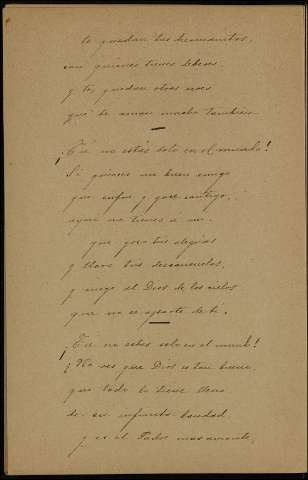 te quedan tus hermanitos,
con quienes tienes deberes,
y te quedan otros seres
que te aman mucho también.
¡Tú no estás solo en el mundo!
Si quieres un buen amigo
que sufra y goce contigo,
aquí me tienes á mí.
que goce tus alegrías
y llore tus desconsuelos,
y ruego al Dios de los cielos
que no se aparte de ti.
¡Tú no estás solo en el mundo!
¡No ves que Dios es tan bueno,
que todo lo tiene lleno
de su infinita bondad
y es el Padre mas amante,